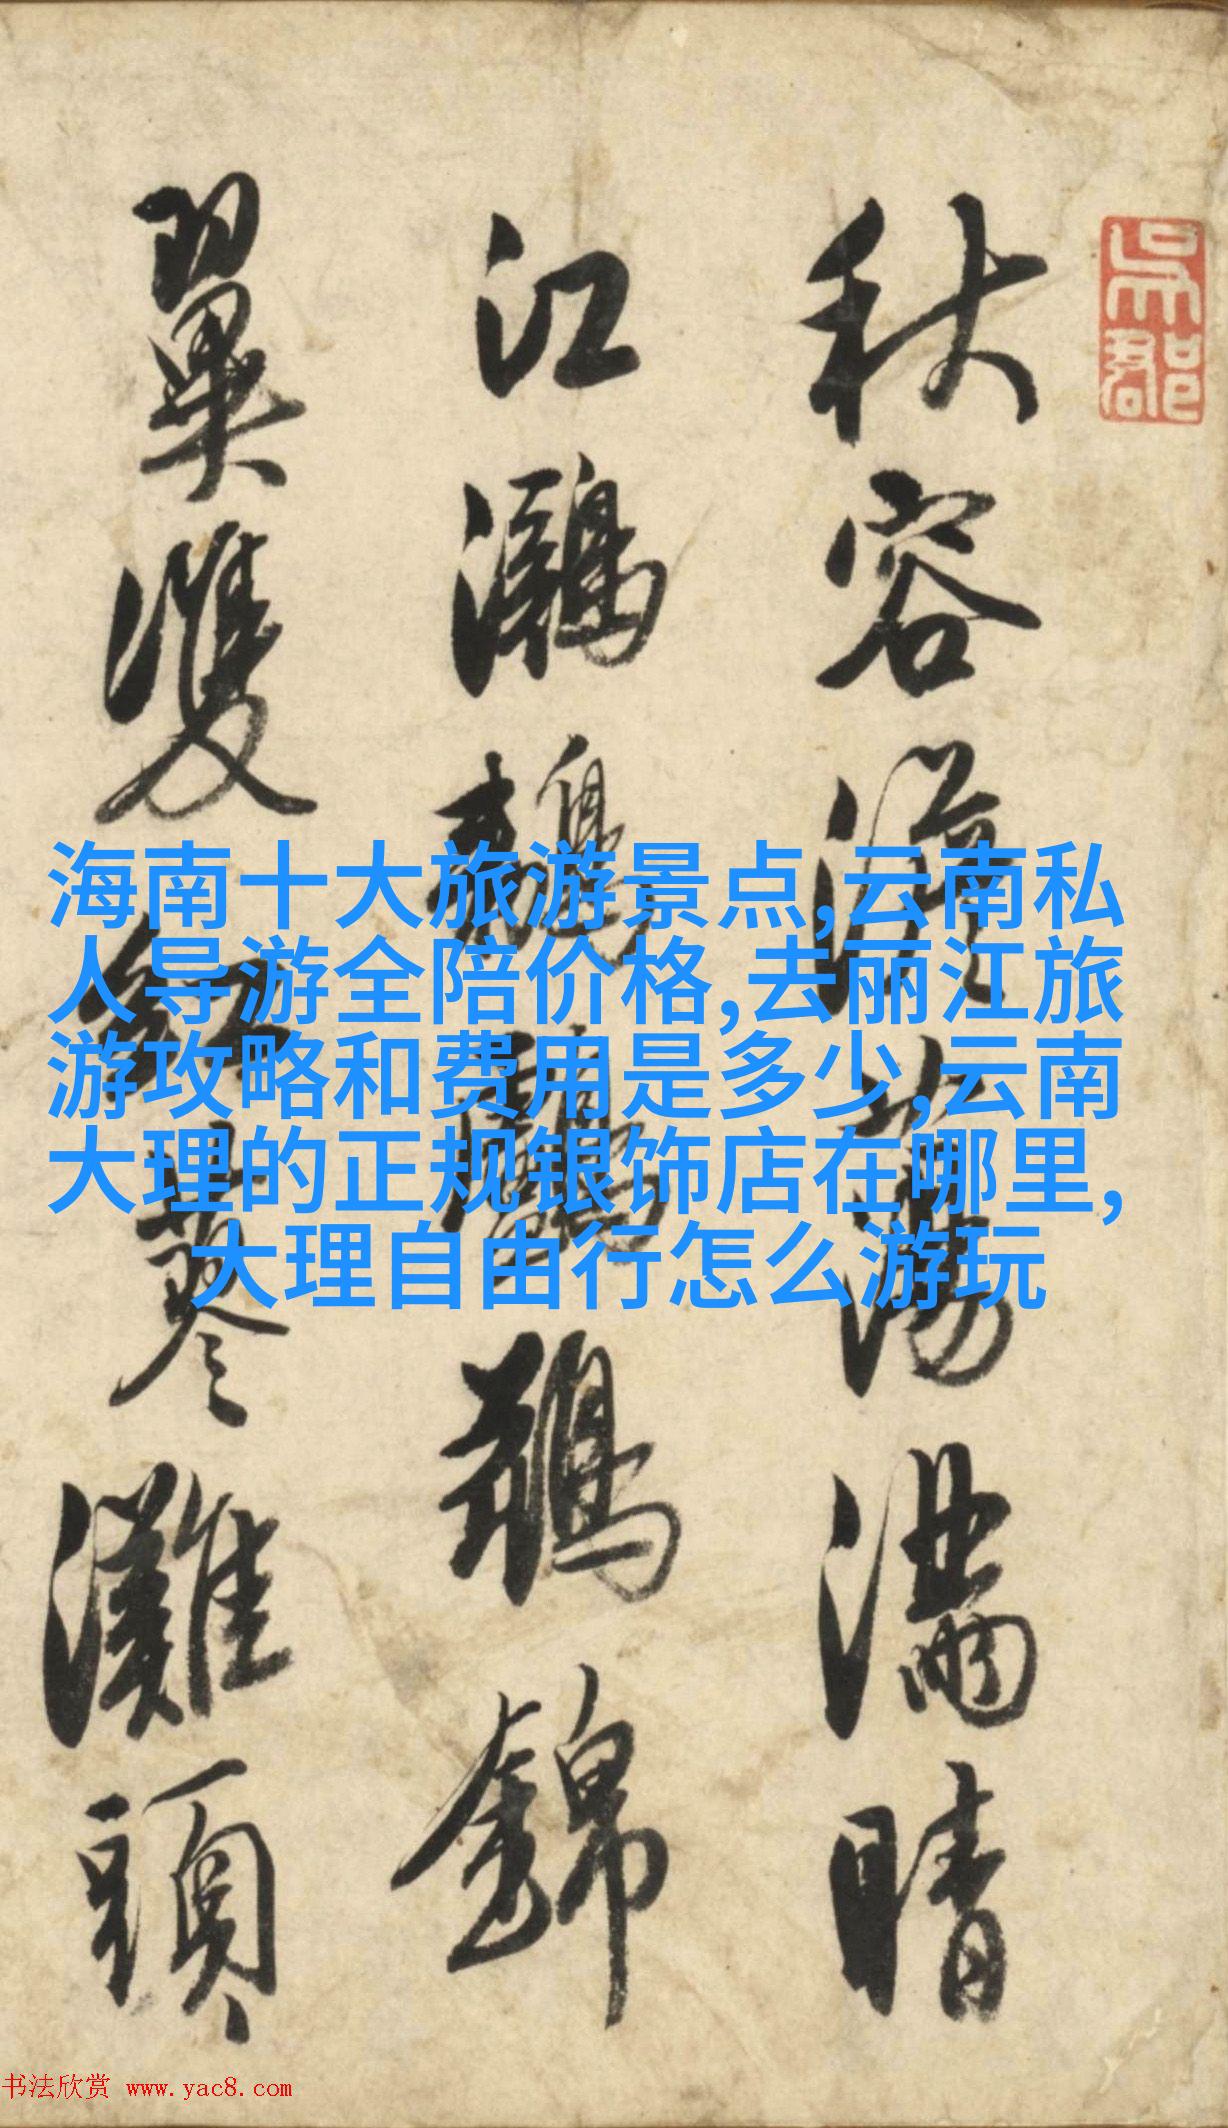 吳郡
秋容蕩滿晴
江鸂錦
翼雙紅蓼灘頭
海南十大旅游景点,云南私
人导游全陪价格,去丽江旅
游攻略和费用是多少,云南
大理的正规银饰店在哪里,
大理自由行怎么游玩
书法欣赏 www.yac8.com